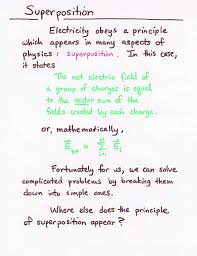 Superposition
Electricity obeys a principle
which appears in many aspects of
physics: superposition. In this case,
it states
The net electric field of
a group of charges is equal
to the vector sum of the
fields created by each charge.
or, mathematically,
E⃗tot = N Σ i=1 E⃗i
Fortunately for us, we can solve
complicated problems by breaking them
down into simple ones.
Where else does the principle
of superposition appear?